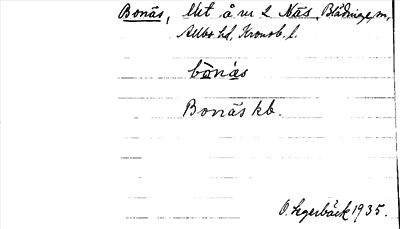 Bonäs, lht å nr 2 Näs, Blädinge sn,
Allbo hd, Kronob. l.
bònǻs
Bonäs kb.
O. Legerbäck 1935.